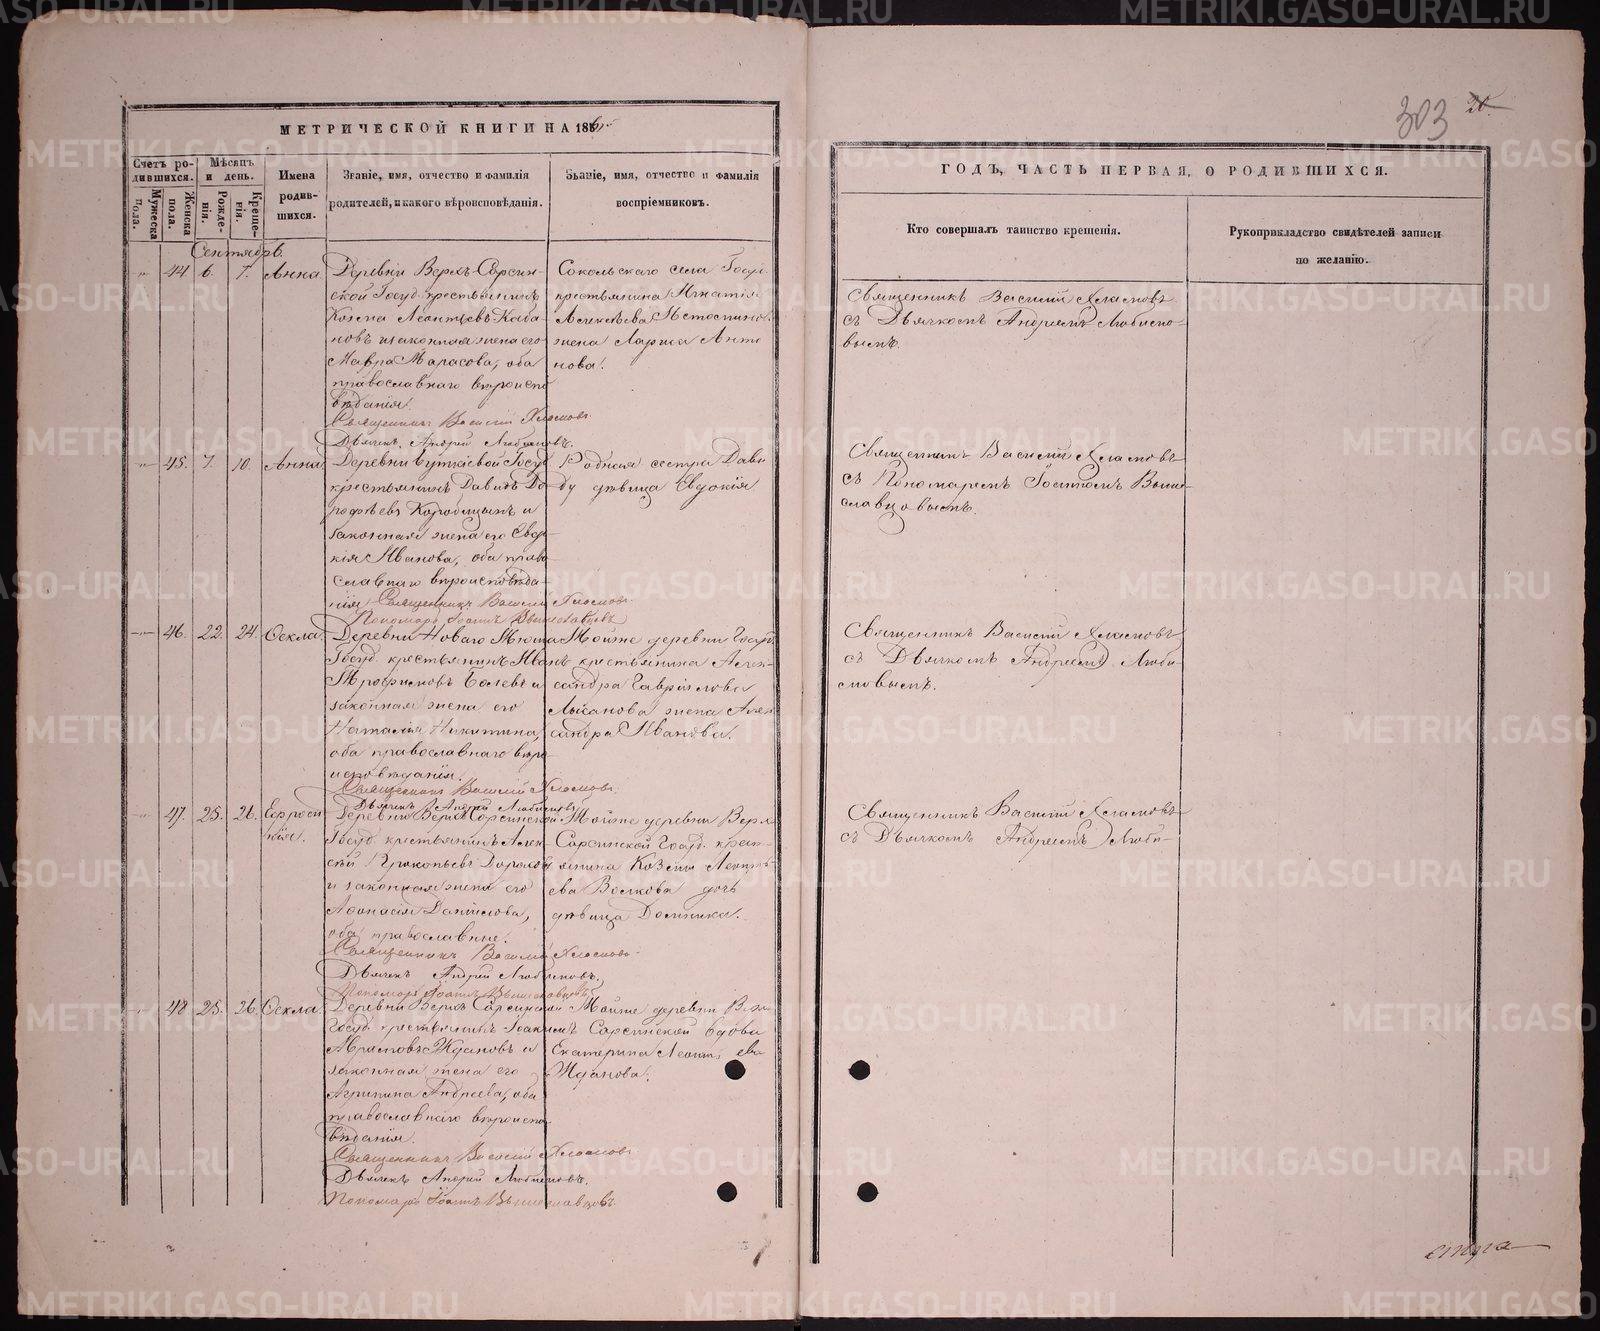 МЕТРИЧЕСКОЙ КНИГИ НА 186
Счетъ родившихся.
Мужеска пола.
Женска пола.
Мѣсяцъ и день.
Рожденія.
Крещенія.
Имена родившихся.
Званіе, имя, отчество и фамилія
родителей, и какого вѣроисповѣданія.
Званіе, имя, отчество и фамилія
воспріемниковъ.
Сентябрь.
44 6. 7. Анна
Деревни Верхъ-Сарсин-
ской Госуд. крестьянинъ
Козма Леонтьевъ Каба-
новъ и законная жена его
Мавра Тарасова, оба
православнаго вѣроиспо
вѣданія.
Священникъ Василій Хламовъ
Дьячекъ Андрей Любимовъ.
Сокольскаго села Госуд.
крестьянина Игнатія
Алексѣева
жена Лариса Анти
нова.
45. 7. 10. Анна
Деревни Госуд
крестьянинъ Давидъ До-
рофѣевъ и
законная жена его Евдо-
кія Иванова, оба право
славнаго вѣроисповѣда-
нія. Священникъ Василій Хламовъ
Пономарь Іоаннъ Вышеславцовъ
Родная сестра Дави
ду дѣвица Евдокія
46. 22. 24. Ѳекла
Деревни Новаго
Госуд. крестьянинъ Иванъ
Трофимовъ и
законная жена его
Наталья Никитина,
оба православнаго вѣро
исповѣданія.
Священникъ Василій Хламовъ
Дьячекъ Андрей Любимовъ
Тойже деревни Госуд.
крестьянина Алек-
сандра Гаврилова
Лысанова жена Алек
сандра Иванова.
47. 25. 26. Ефроси
нія.
Деревни Верхъ Сарсинской
Госуд. крестьянинъ Алек-
сѣй Прокопьевъ
и законная жена его
Аѳонасія Данилова,
оба православные.
Священникъ Василій Хламовъ
Дьячекъ Андрей Любимовъ.
Пономарь Іоаннъ Вышеславцовъ
Тойже деревни Верх
Сарсинской Госуд. крест-
янина Козмы Леонть-
ева Волкова дочь
дѣвица Домника.
48 25. 26. Ѳекла.
Деревни Верхъ Сарсинской
Госуд. крестьянинъ Іоакимъ
Абрамовъ Ждановъ и
законная жена его
Агрипина Андреева, оба
православнаго вѣроиспо-
вѣданія.
Священникъ Василій Хламовъ
Дьячекъ Андрей Любимовъ.
Пономарь Іоаннъ Вышеславцовъ.
Тойже деревни Верх
Сарсинской вдова
Екатерина Леонтьева
Жданова.
303
ГОДЪ, ЧАСТЬ ПЕРВАЯ, О РОДИВШИХСЯ.
Кто совершалъ таинство крещенія.
Рукоприкладство свидѣтелей записи
по желанію.
Священникъ Василій Хламовъ
съ Дьячкомъ Андреемъ Любимо-
вымъ.
Священникъ Василій Хламовъ
съ Пономаремъ Іоанномъ Выше-
славцовымъ.
Священникъ Василій Хламовъ
съ Дьячкомъ Андреемъ Люби-
мовымъ.
Священникъ Василій Хламовъ
съ Дьячкомъ Андреемъ Люби-
METRIKI.GASO-URAL.RU